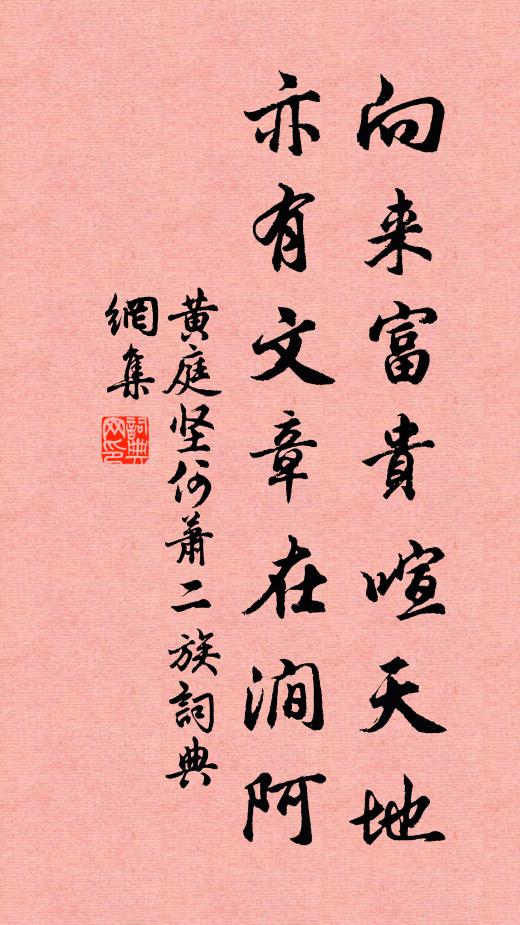 向来富貴喧天地
亦有文章在澗阿
黄庭坚何萧二族詞典
網集
詞典
网印